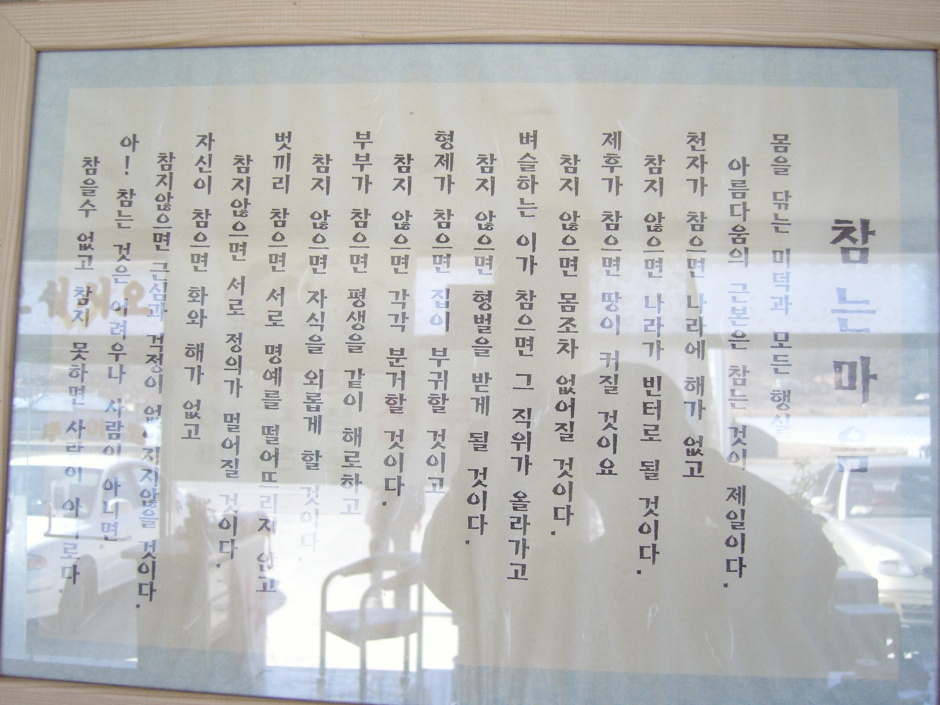 참는마음
몸을 닦는 미덕과 모든 행실
아름다움의 근본은 참는 것이 제일이다.
천자가 참으면 나라에 해가 없고
참지 않으면 나라가 빈터로 될 것이다.
제후가 참으면 땅이 커질 것이요
참지 않으면 몸조차 없어질 것이다.
벼슬하는 이가 참으면 그 직위가 올라가고
참지 않으면 형벌을 받게 될 것이다.
형제가 참으면 집이 부귀할 것이고
참지 않으면 각각 분거할 것이다.
부부가 참으면 평생을 같이 해로하고
참지 않으면 자식을 외롭게 할 것이다.
벗끼리 참으면 서로 명예를 떨어뜨리지 않고
참지않으면 서로 정의가 멀어질 것이다.
자신이 참으면 화와 해가 없고
참지않으면 근심과 걱정이 없어지지않을 것이다.
아! 참는 것은 어려우나 사람이 아니면
참을수 없고 참지 못하면 사람이 아니로다.